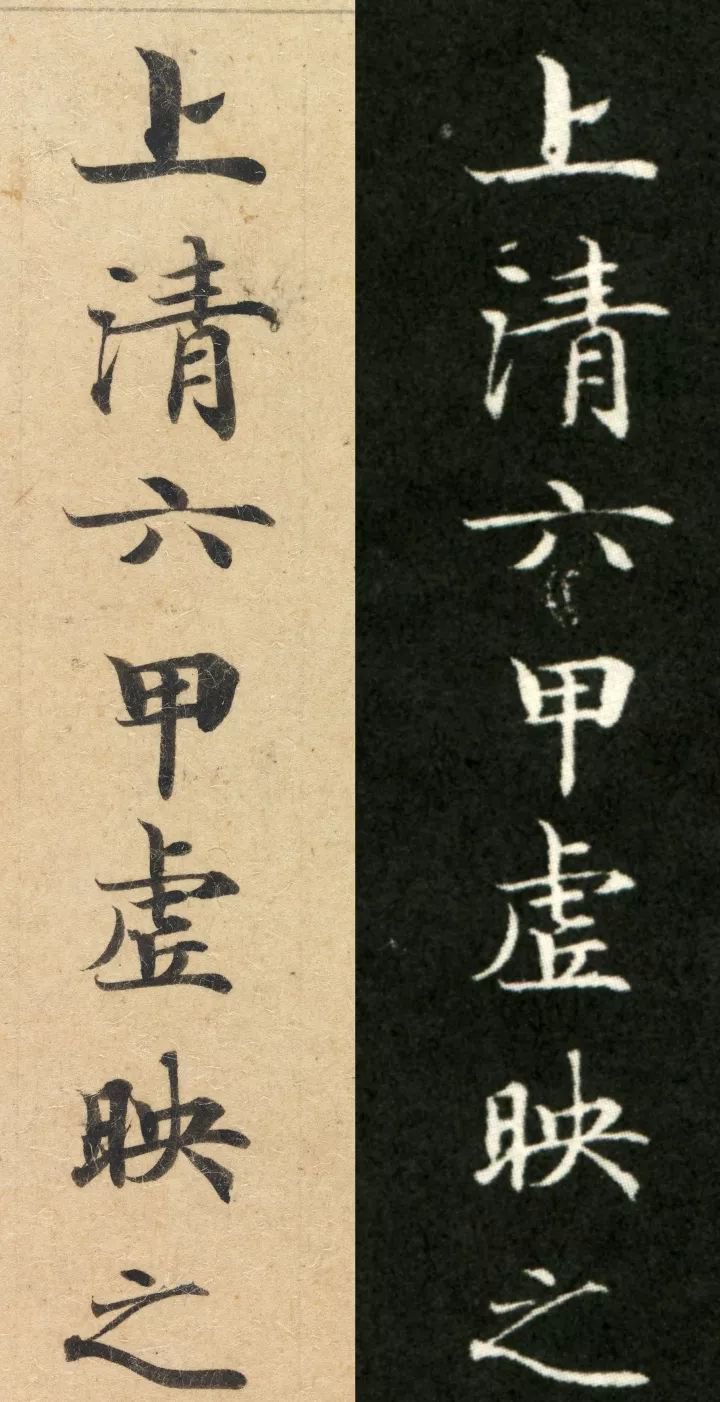 上清六甲虛映之
上清六甲虛映之